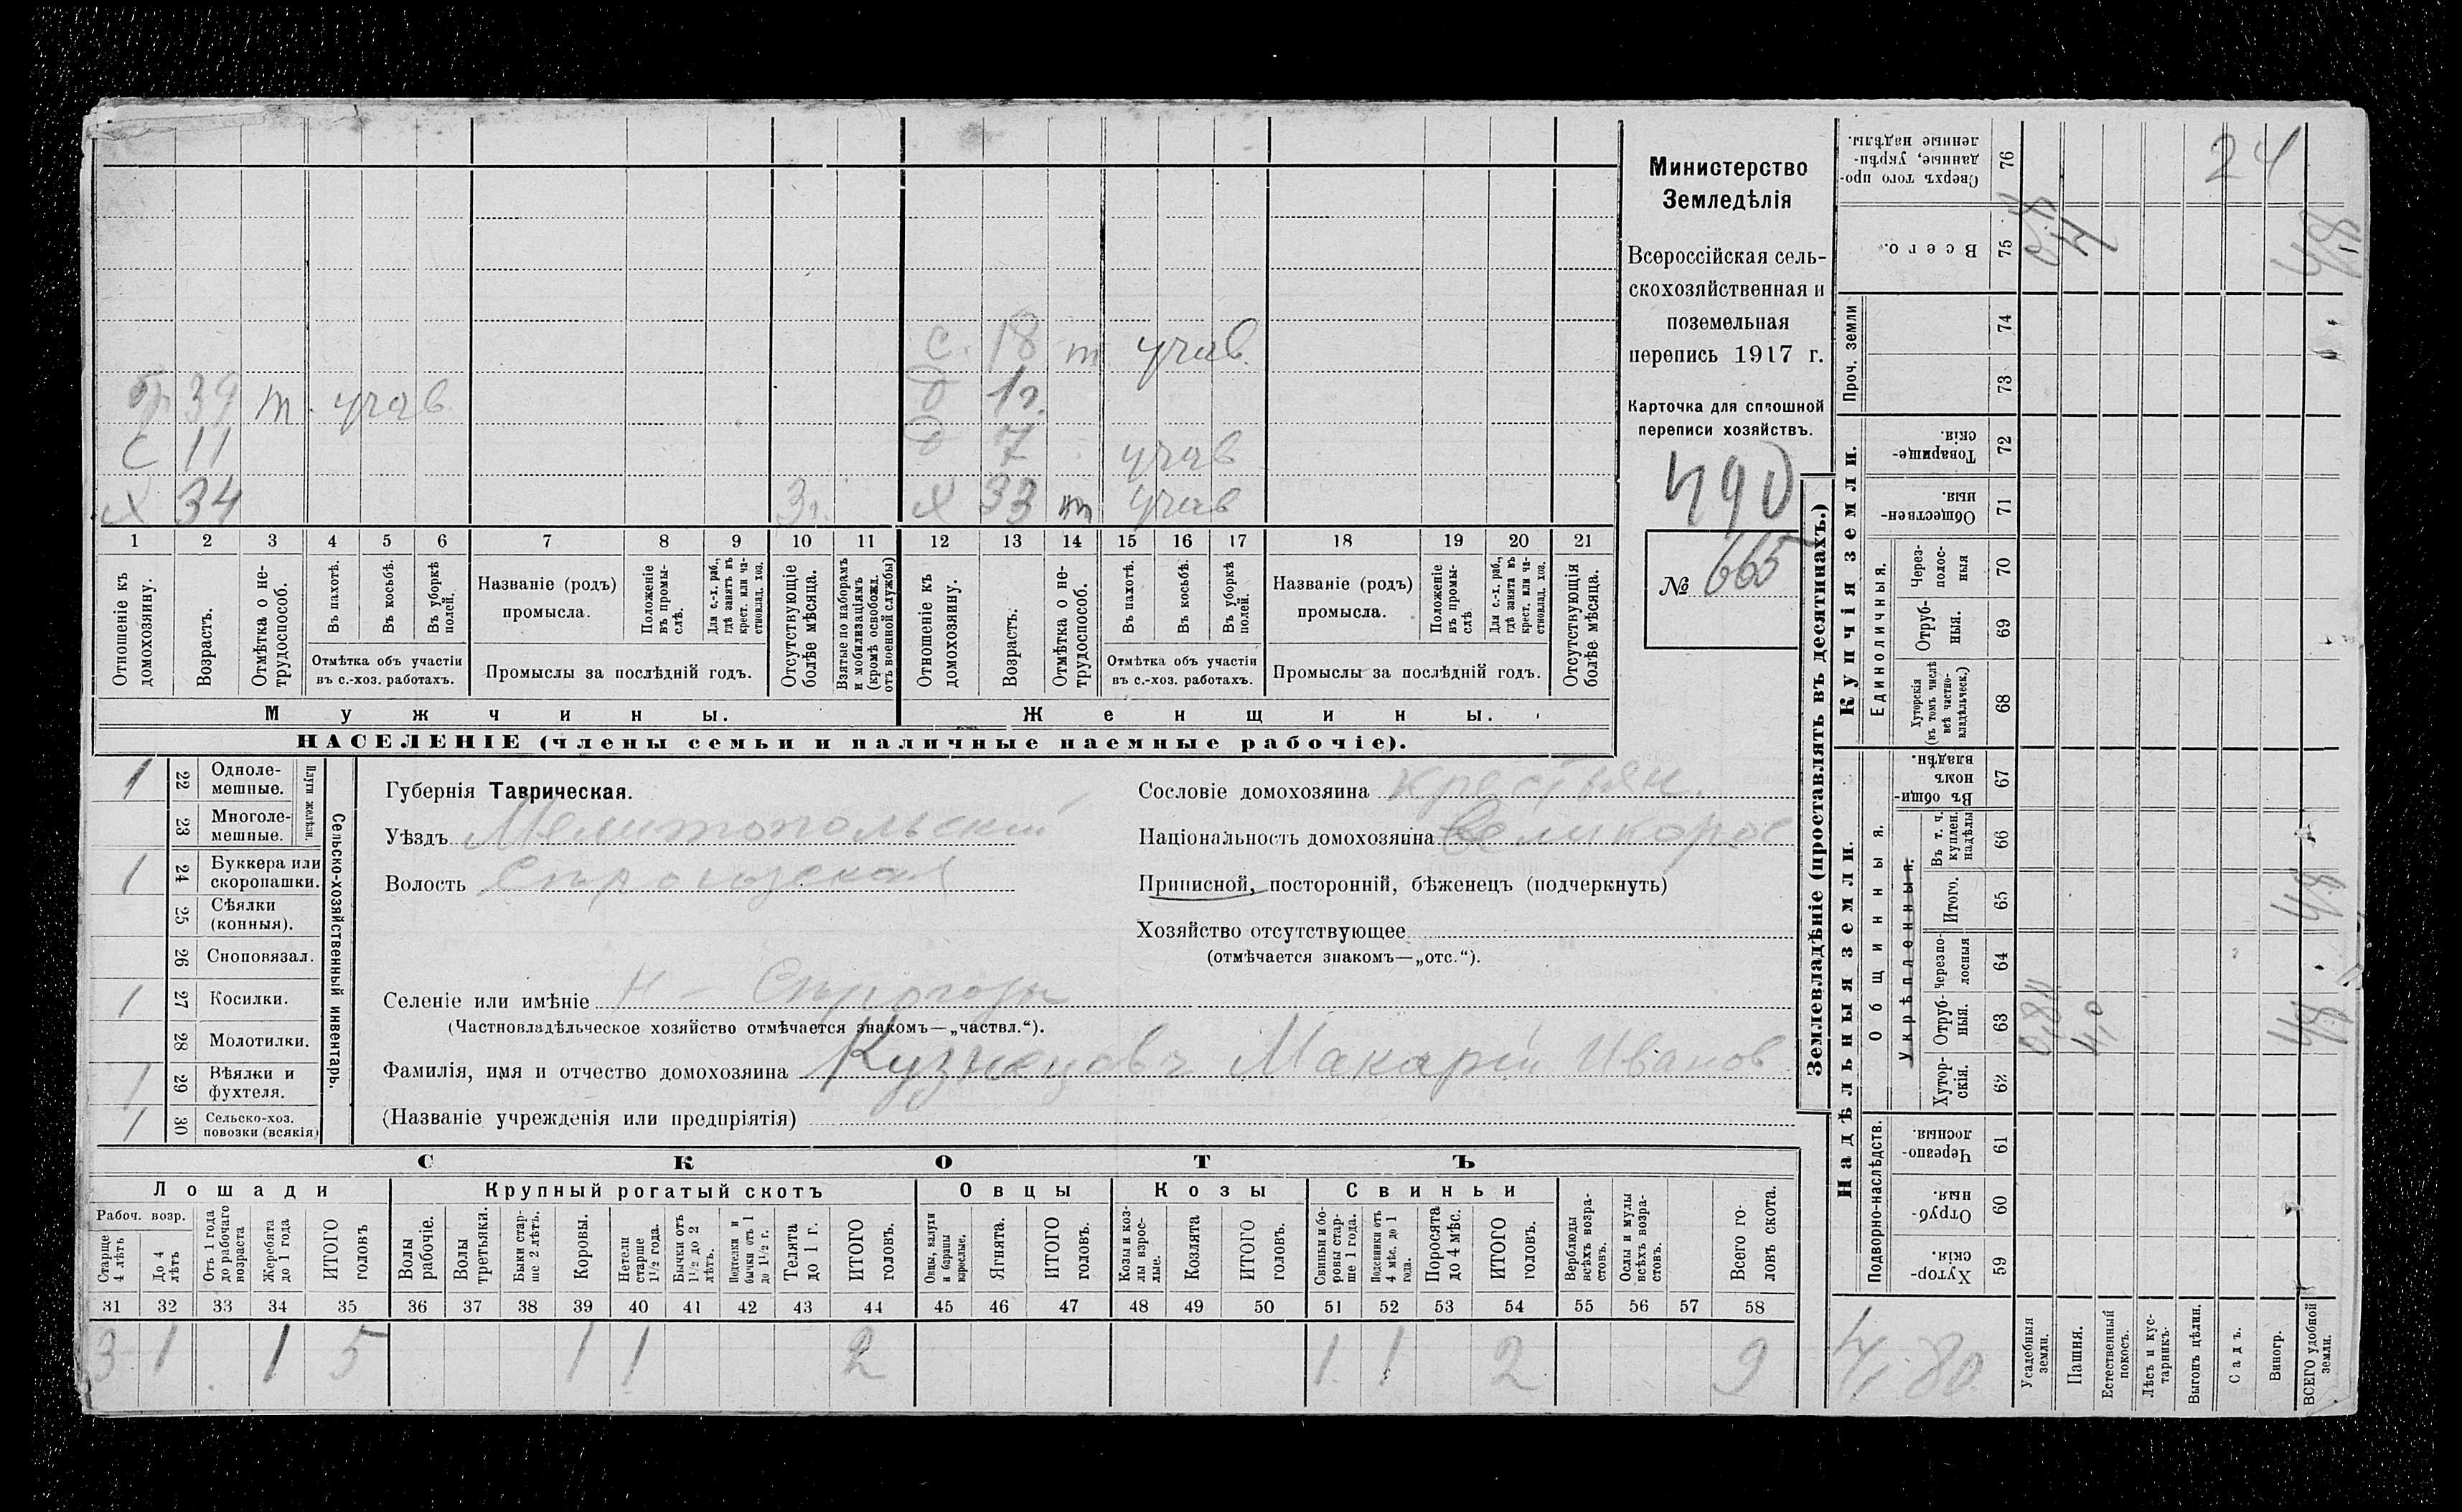 Министерство
Земледѣлія
Всероссійская сель-
скохозяйственная и
поземельная
перепись 1917 г.
Карточка для сплошной
переписи хозяйствъ.
490
№ 665
с. 18 т учав.
д 1г.
бр 39 т. учав.
д 7 учав
с 11
х 34 3г.
х 33 т учав
1 2 3 4 5 6 7 8 9 10 11 12 13 14 15 16 17 18 19 20 21
Отношеніе къ домохозяину.
Возрастъ.
Отмѣтка о не-трудоспособ.
Въ пахотѣ.
Въ косьбѣ.
Въ уборкѣ полей.
Отмѣтка объ участіи
въ с.-хоз. работахъ.
Названіе (родъ)
промысла.
Положеніе въ промы-слѣ.
Для с.-х. раб., гдѣ занятъ въ крест. или ча-стновлад. хоз.
Промыслы за послѣдній годъ.
Отсутствующіе болѣе мѣсяца.
Взятые по наборамъ и мобилизаціямъ (кромѣ освобожд. отъ военной службы)
Отношеніе къ домохозяину.
Возрастъ.
Отмѣтка о не-трудоспособ.
Въ пахотѣ.
Въ косьбѣ.
Въ уборкѣ полей.
Отмѣтка объ участіи
въ с.-хоз. работахъ.
Названіе (родъ)
промысла.
Положеніе въ промы-слѣ
Для с.-х. раб., гдѣ занята въ крест. или ча-стновлад. хоз.
Промыслы за послѣдній годъ.
Отсутствующія болѣе мѣсяца.
Мужчины.
Женщины.
НАСЕЛЕНІЕ (члены семьи и наличные наемные рабочіе).
Сельско-хозяйственный инвентарь.
Плуги желѣзн.
1 22 Одноле-
мешные.
23 Многоле-
мешные.
1 24 Буккера или
скоропашки.
25 Сѣялки
(конныя).
26 Сноповязал.
1 27 Косилки.
28 Молотилки.
1 29 Вѣялки и
фухтеля.
1 30 Сельско-хоз.
повозки (всякія)
Губернія Таврическая.
Уѣздъ Мелитопольскій
Волость
Сословіе домохозяина крестьян.
Національность домохозяина Великорос
Приписной, посторонній, бѣженецъ (подчеркнуть)
Хозяйство отсутствующее
(отмѣчается знакомъ—„отс.“).
Селеніе или имѣніе Н -
(Частновладѣльческое хозяйство отмѣчается знакомъ—„частвл.“).
Фамилія, имя и отчество домохозяина Кузнецовъ Макарій Иванов
(Названіе учрежденія или предпріятія)
СКОТЪ
Лошади
Рабоч. возр.
Старше 4 лѣтъ
До 4 лѣтъ
Отъ 1 года до рабочаго возраста
Жеребята до 1 года
ИТОГО головъ
Крупный рогатый скотъ
Волы рабочіе.
Волы третьяки.
Быки стар-ше 2 лѣтъ.
Коровы.
Нетели старше 1½ года.
Бычки отъ 1½ до 2 лѣтъ.
Подтелки и бычки отъ 1 до 1½ г.
Телята до 1 г.
ИТОГО головъ.
Овцы
Овцы, валухи и бараны взрослые.
Ягнята.
ИТОГО головъ.
Козы
Козы и коз-лы взрос-лые.
Козлята
ИТОГО головъ.
Свиньи
Свиньи и бо-ровы стар-ше 1 года.
Подсвинки отъ 4 мѣс. до 1 года.
Поросята до 4 мѣс.
ИТОГО головъ.
Верблюды всѣхъ возра-стовъ.
Ослы и мулы всѣхъ возра-стовъ.
Всего го-ловъ скота.
31 32 33 34 35 36 37 38 39 40 41 42 43 44 45 46 47 48 49 50 51 52 53 54 55 56 57 58
3 1 1 5 1 1 2 1 1 2 9
Землевладѣніе (проставлять въ десятинахъ.)
Купчія земли.
Надѣльныя земли.
Сверхъ того про-данные, укрѣп-ленные надѣлы. 76
24
Всего. 75
Проч. земли
74
73
Товарище-скія. 72
Обществен-ныя. 71
Единоличныя.
Через-полос-ныя 70
Отруб-ныя. 69
Хуторскія (въ томъ числѣ всѣ частно-владѣльческ.) 68
Въ общин-номъ владѣн. 67
Общинныя.
Укрѣпленныя.
Въ т. ч. куплен. надѣлы 66
Итого. 65
Черезпо-лосныя 64
Отруб-ныя. 63
Хутор-скія. 62
Подворно-наслѣдств.
Черезпо-лосныя. 61
Отруб-ныя. 60
Хутор-скія. 59
4,80
Усадебныя земли.
Пашня.
Естественный покосъ.
Лѣсъ и кус-тарникъ.
Выгонъ цѣлин.
Садъ.
Виногр.
ВСЕГО удобной земли.